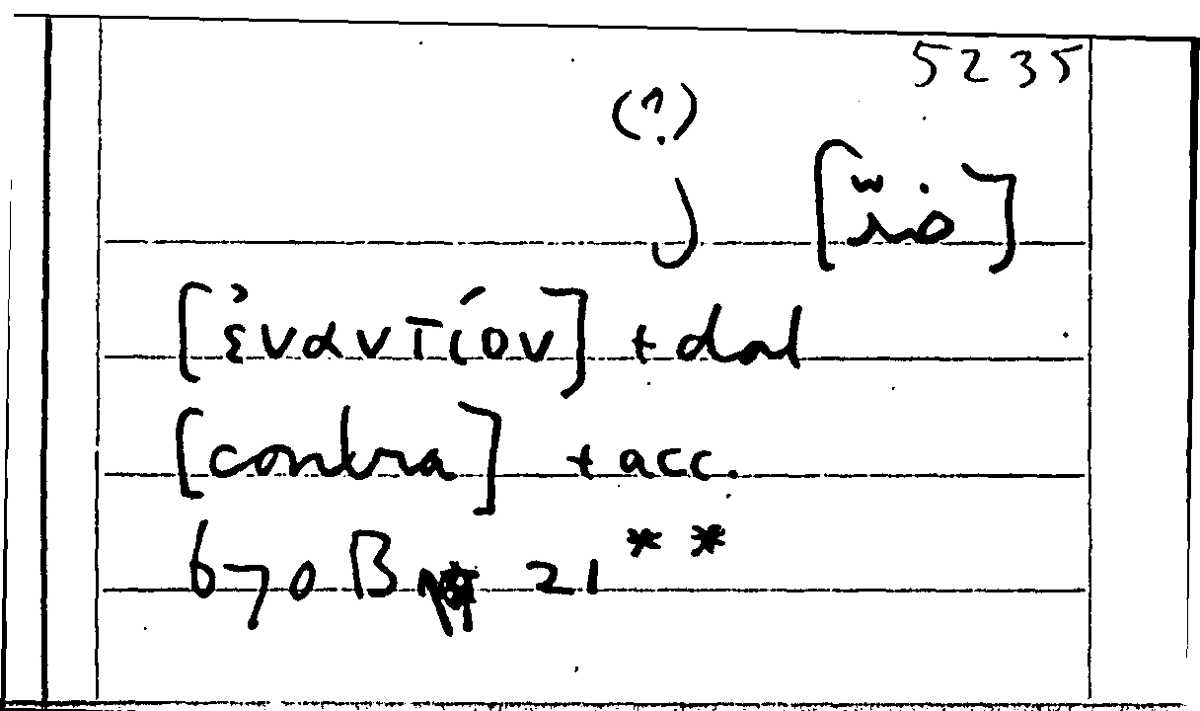 5235
(?)
ل
[ἐναντίον] + dat
[contra] + acc.
670 B 21 **